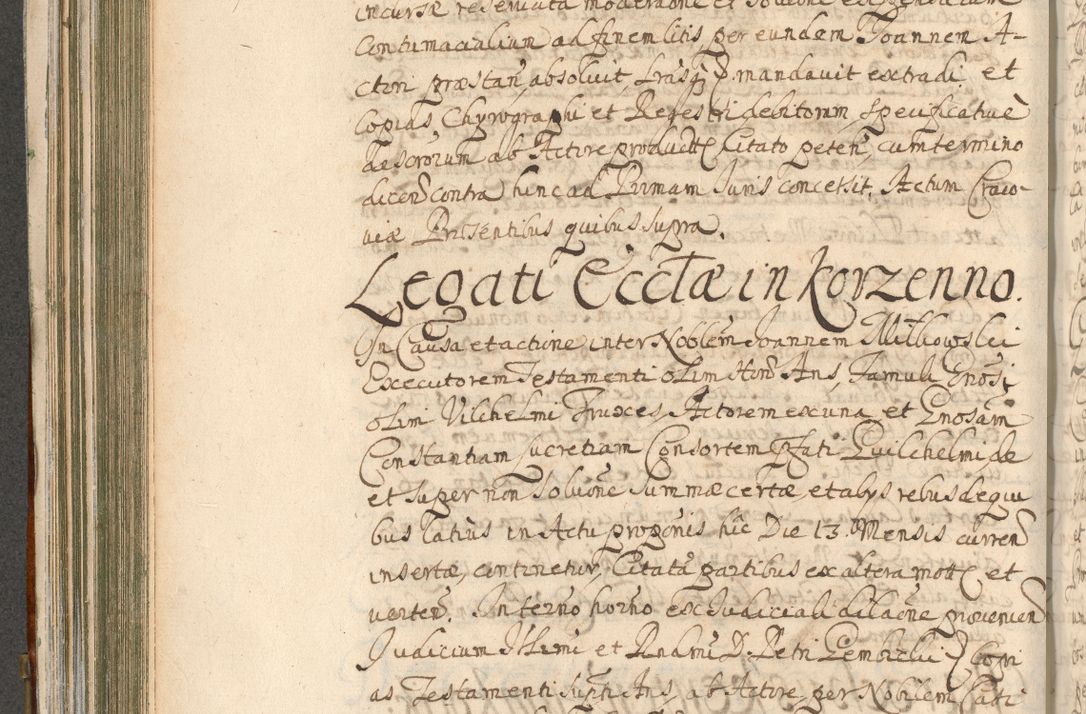 incursæ reservata moderaõne et soluõne expensarum
Contumacialium ad finem litis per eundem Joannem A-
ctori præstan, absoluit, mandauit extradi et
Copias Chyrographi et Regestri debitorum specificatiuè
descrorum ab Actore product Citato peten, cum termino
dicen contra hinc ad Primam Juris concessit. Actum Craco-
uiæ Præsentibus quibus supra.
Legati Ecctæ in Korzenno.
In Causa et actione inter Noblem Joannem Milkowski
Executorem Testamenti olim Ans, Famuli Gnosi
olim Vilchelmi Truxes, Actorem ex una et Gnosam
Constantiam Lucretiam Consortem pfati Quilchelmi, de
et super non soluõne summæ certæ, et alys rebus de qui
bus latiùs in Actu prpgonis hic Die 13 Mensis curren
insertæ, continetur, Citatã partibus ex altera mott et
verten. In terno horno ex Judiciali dilaõne prouenien
Judicium Illimi et Rndmi D. Petri Gembicki Copi
as Testamenti supti Ans, ab Actore, per Nobilem Casti